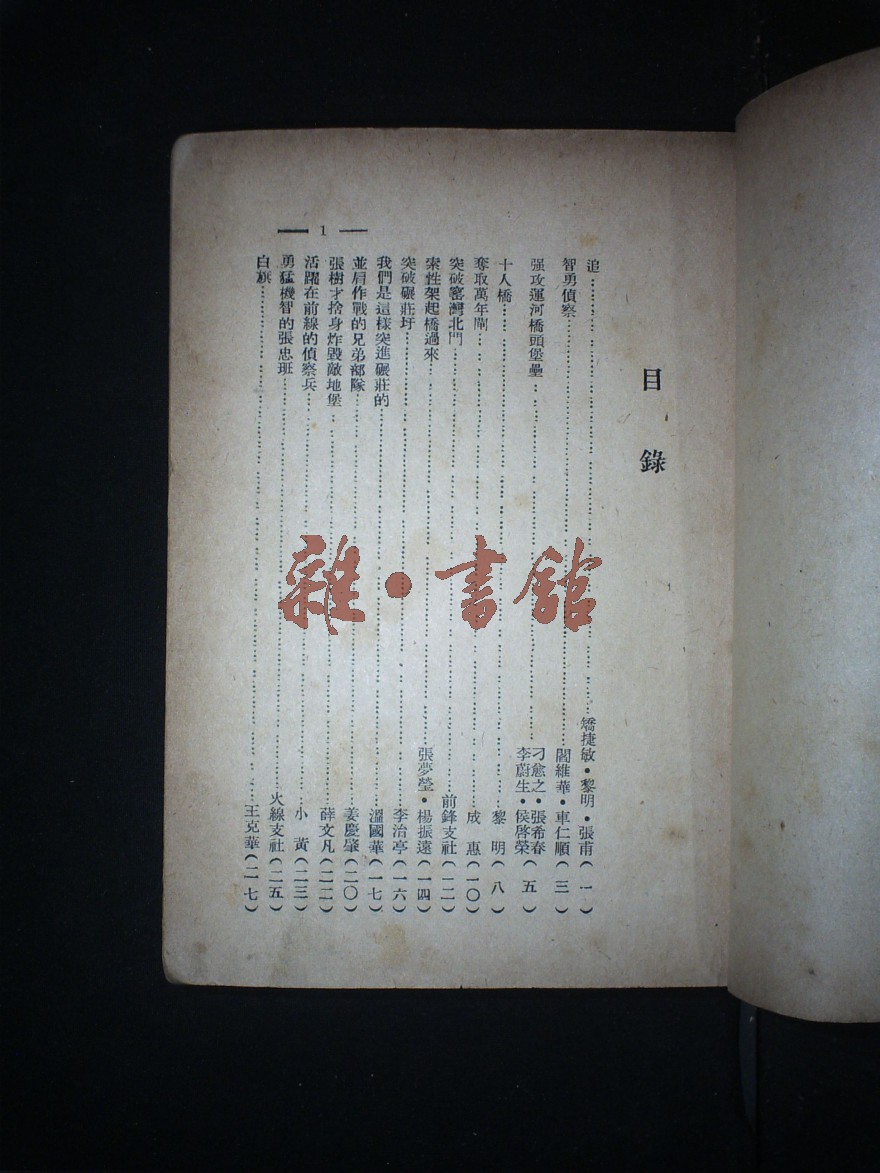 目錄
追……矯捷敏・黎明・張甫(一)
智勇偵察……閻維華・車仁順(三)
强攻運河橋頭堡壘……刁愈之・張希春 李蔚生・侯啓榮(五)
十人橋……黎明(八)
奪取萬年閘……成惠(一〇)
突破窰灣北門……前鋒支社(一二)
索性架起橋過來……張夢瑩・楊振遠(一四)
突破碾莊圩……李治亭(一六)
我們是這樣突進碾莊的……溫國華(一七)
並肩作戰的兄弟部隊……姜慶肇(二〇)
張樹才捨身炸毀敵地堡……薛文凡(二二)
活躍在前線的偵察兵……小黃(二三)
勇猛機智的張忠班……火線支社(二五)
白旗……王克華(二七)
— 1 —
雜・書館